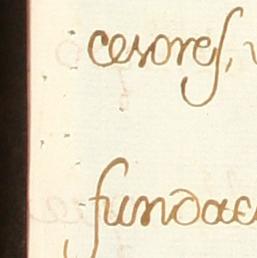 cesores,
fundae